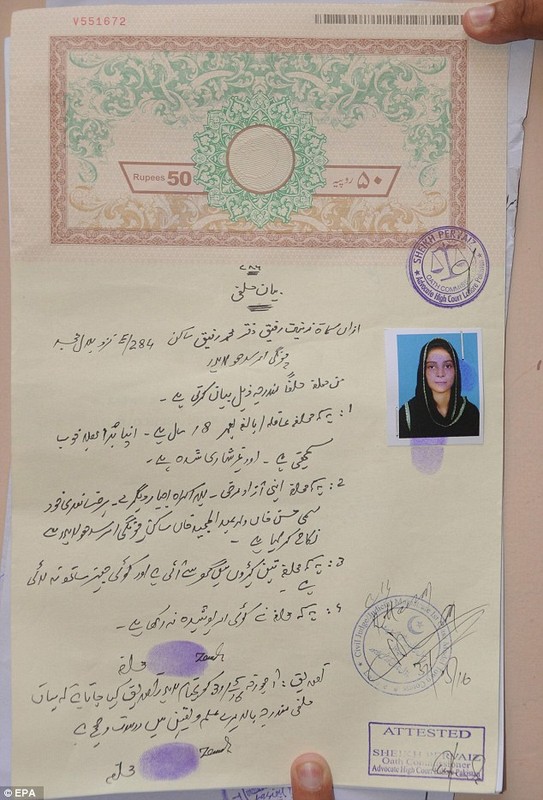 V551672
Rupees 50
۵۰ روپیہ
SHEIKH PERVAIZ
OATH COMMISSIONER
Advocate High Court Lahore Pakistan
۷۸۶
بیان حلفی
ازاں مسماۃ زینت رفیق دختر محمد رفیق ساکن E/284 نزد
چونگی امرسدھو لاہور
من حلفاً مندرجہ ذیل بیان کرتی ہے۔
1: یہ کہ مظہرہ عاقلہ / بالغہ بعمر 18 سال ہے۔ اپنا برا بھلا خوب
سمجھتی ہے۔ اور غیر شادی شدہ ہے۔
2: یہ کہ اپنی آزاد مرضی۔ بلا جبر و اکراہ برضامندی خود
مسمی حسن خاں ولد عبدالمجید خاں ساکن چونگی امرسدھو لاہور سے
نکاح کر لیا ہے۔
3: یہ کہ تین کپڑوں میں گھر سے آئی ہے اور کوئی چیز ساتھ نہ لائی
ہے
4: یہ کہ نے کوئی امر پوشیدہ نہ رکھا ہے۔
Zeenat
تصدیق: آج بمقام لاہور تصدیق کیا جاتا ہے کہ بیان
حلفی مندرجہ بالا میرے علم و یقین میں درست و صحیح ہے
Zeenat
Civil Judge
ATTESTED
SHEIKH PERVAIZ
Oath Commissioner
Advocate High Court Lahore Pakistan
© EPA